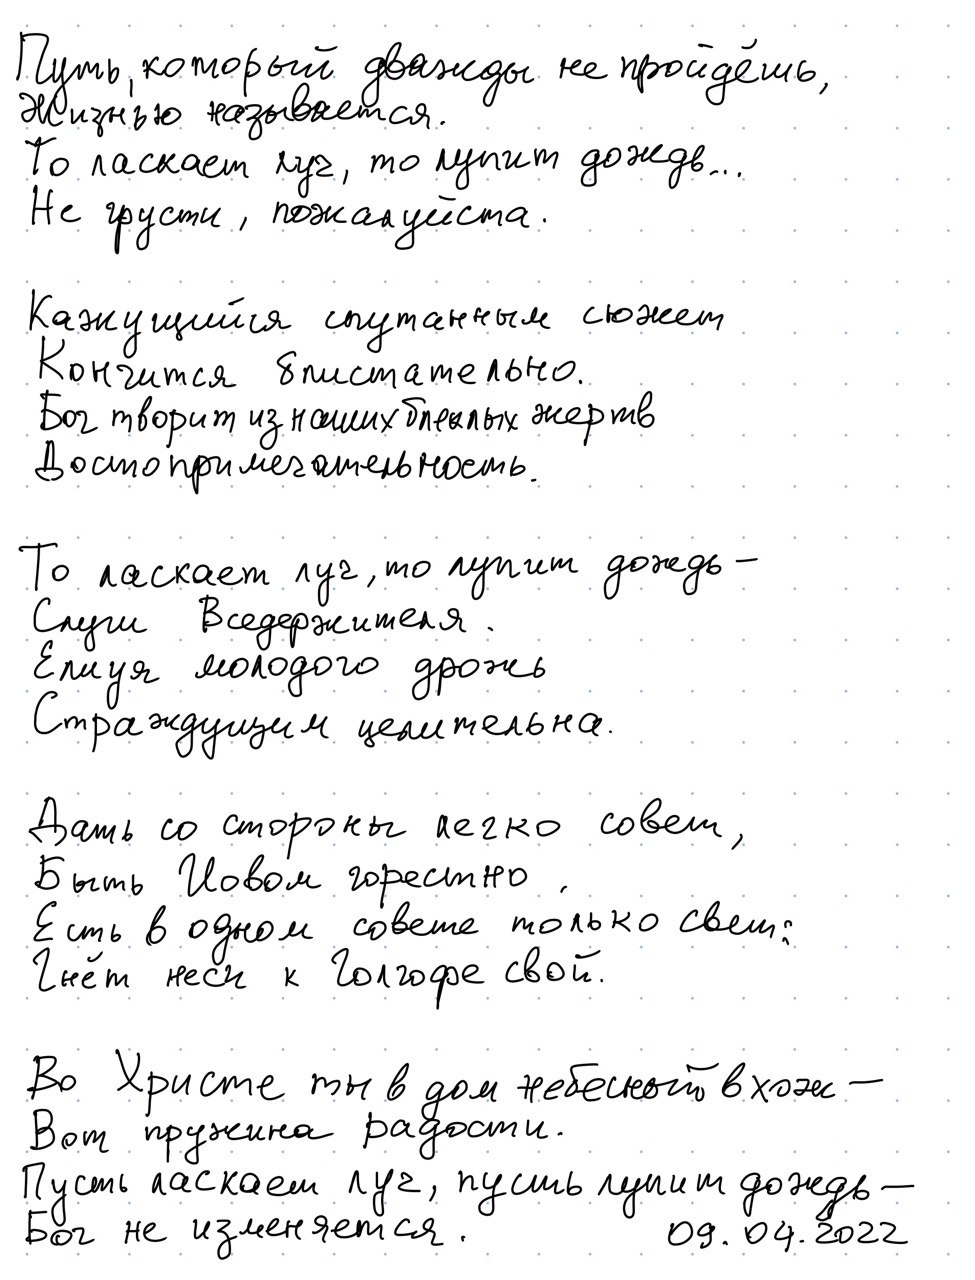 Путь, который дважды не пройдёшь,
Жизнью называется.
То ласкает луч, то лупит дождь...
Не грусти, пожалуйста.
Кажущийся спутанным сюжет
Кончится блистательно.
Бог творит из наших блеклых жертв
Достопримечательность.
То ласкает луч, то лупит дождь —
Слуги Вседержителя.
Елиуя молодого дрожь
Страждущим целительна.
Дать со стороны легко совет,
Быть Иовом горестно.
Есть в одном совете только свет:
Гнёт неси к Голгофе свой.
Во Христе ты в дом небесный вхож —
Вот пружина радости.
Пусть ласкает луч, пусть лупит дождь —
Бог не изменяется. 09.04.2022